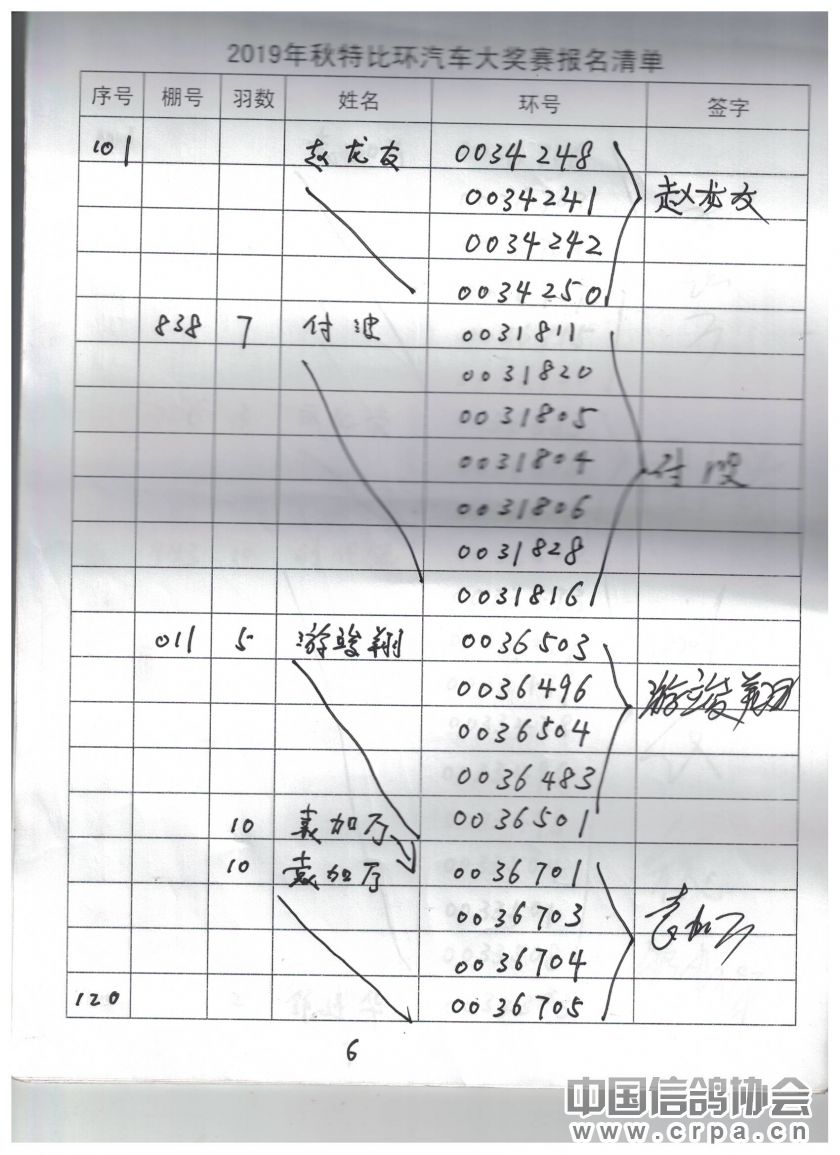 2019年秋特比环汽车大奖赛报名清单
序号 棚号 羽数 姓名 环号 签字
101 赵龙友 0034248
0034241 赵龙友
0034242
0034250
838 7 付波 0031811
0031820
0031805
0031804 付波
0031806
0031828
0031816
011 5 游骏翔 0036503
0036496 游骏翔
0036504
0036483
10 袁加万 0036501
10 袁加万 0036701
0036703 袁加万
0036704
120 0036705
6
中国信鸽协会
www.crpa.cn